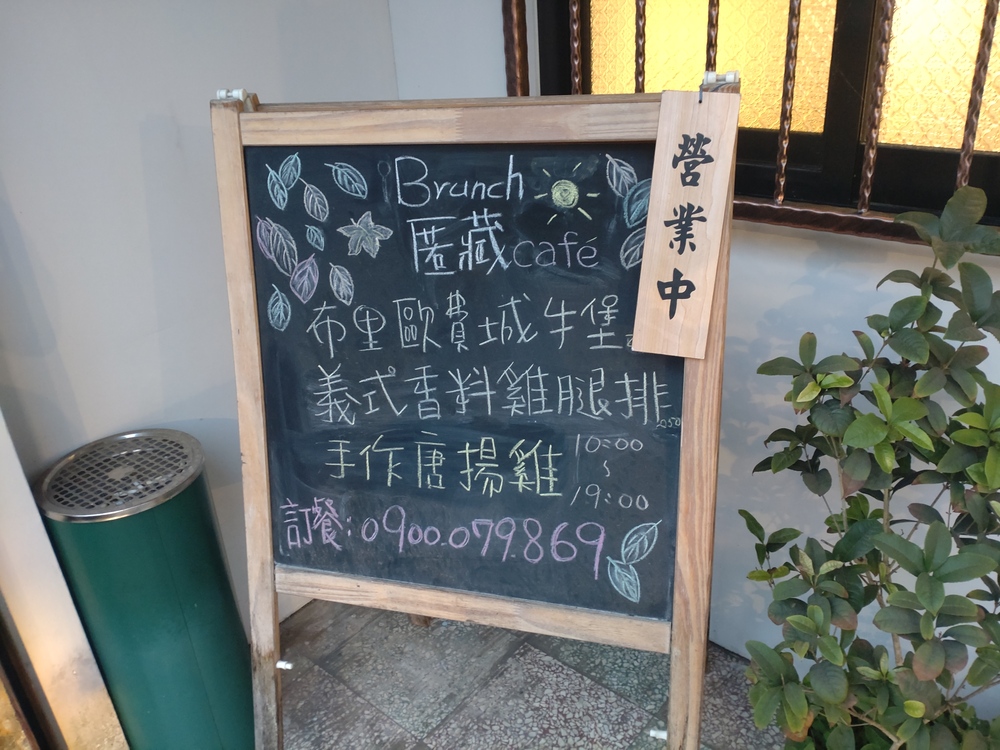 Brunch
匿藏café
布里歐費城牛堡
義式香料雞腿排
手作唐揚雞
10:00
~
19:00
訂餐:0900.079.869
營業中